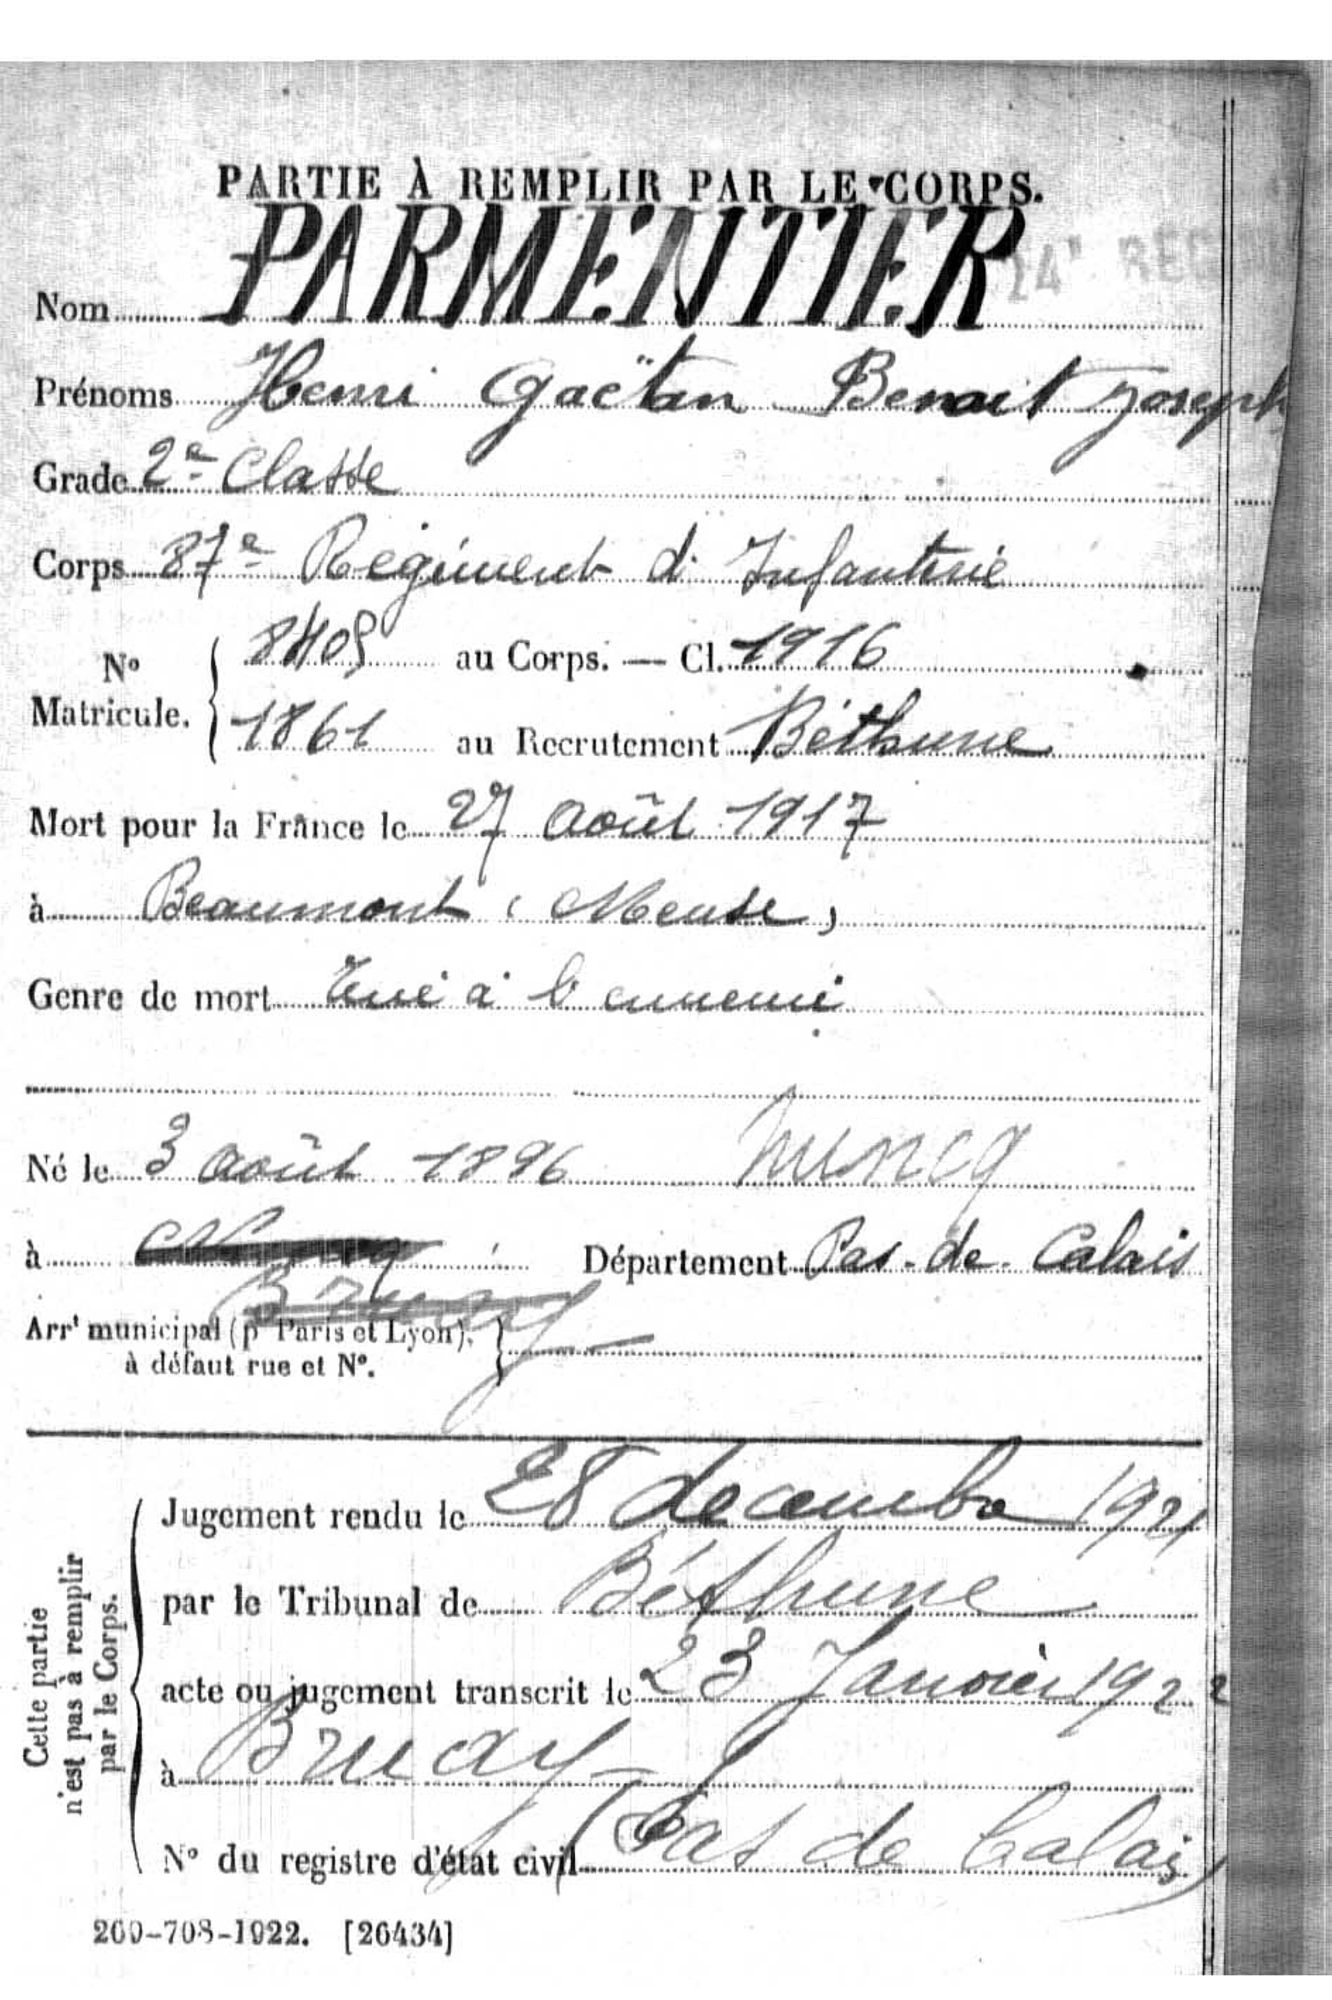 PARTIE À REMPLIR PAR LE CORPS.
24e REG
Nom PARMENTIER
Prénoms Henri Gaëtan Benoit Joseph
Grade 2e Classe
Corps 87e Régiment d'Infanterie
No Matricule. { 8405 au Corps. — Cl. 1916
1861 au Recrutement Béthune
Mort pour la France le 27 Août 1917
à Beaumont (Meuse)
Genre de mort Tué à l'ennemi
Né le 3 Août 1896 Nuncq
à Département Pas-de-Calais
Bruay
Arrt municipal (pr Paris et Lyon),
à défaut rue et No.
Cette partie n'est pas à remplir par le Corps.
Jugement rendu le 28 decembre 1921
par le Tribunal de Béthune
acte ou jugement transcrit le 23 Janvier 1922
à Bruay
No du registre d'état civil (Pas de Calais)
260-708-1922. [26434]